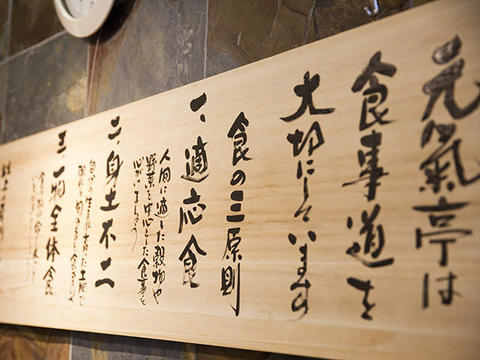 元氣亭は
食事道を
大切にしています
食の三原則
一、適応食
人間に適した穀物や
野菜を中心とした食事を
心がけましょう
二、身土不二
三、一物全体食